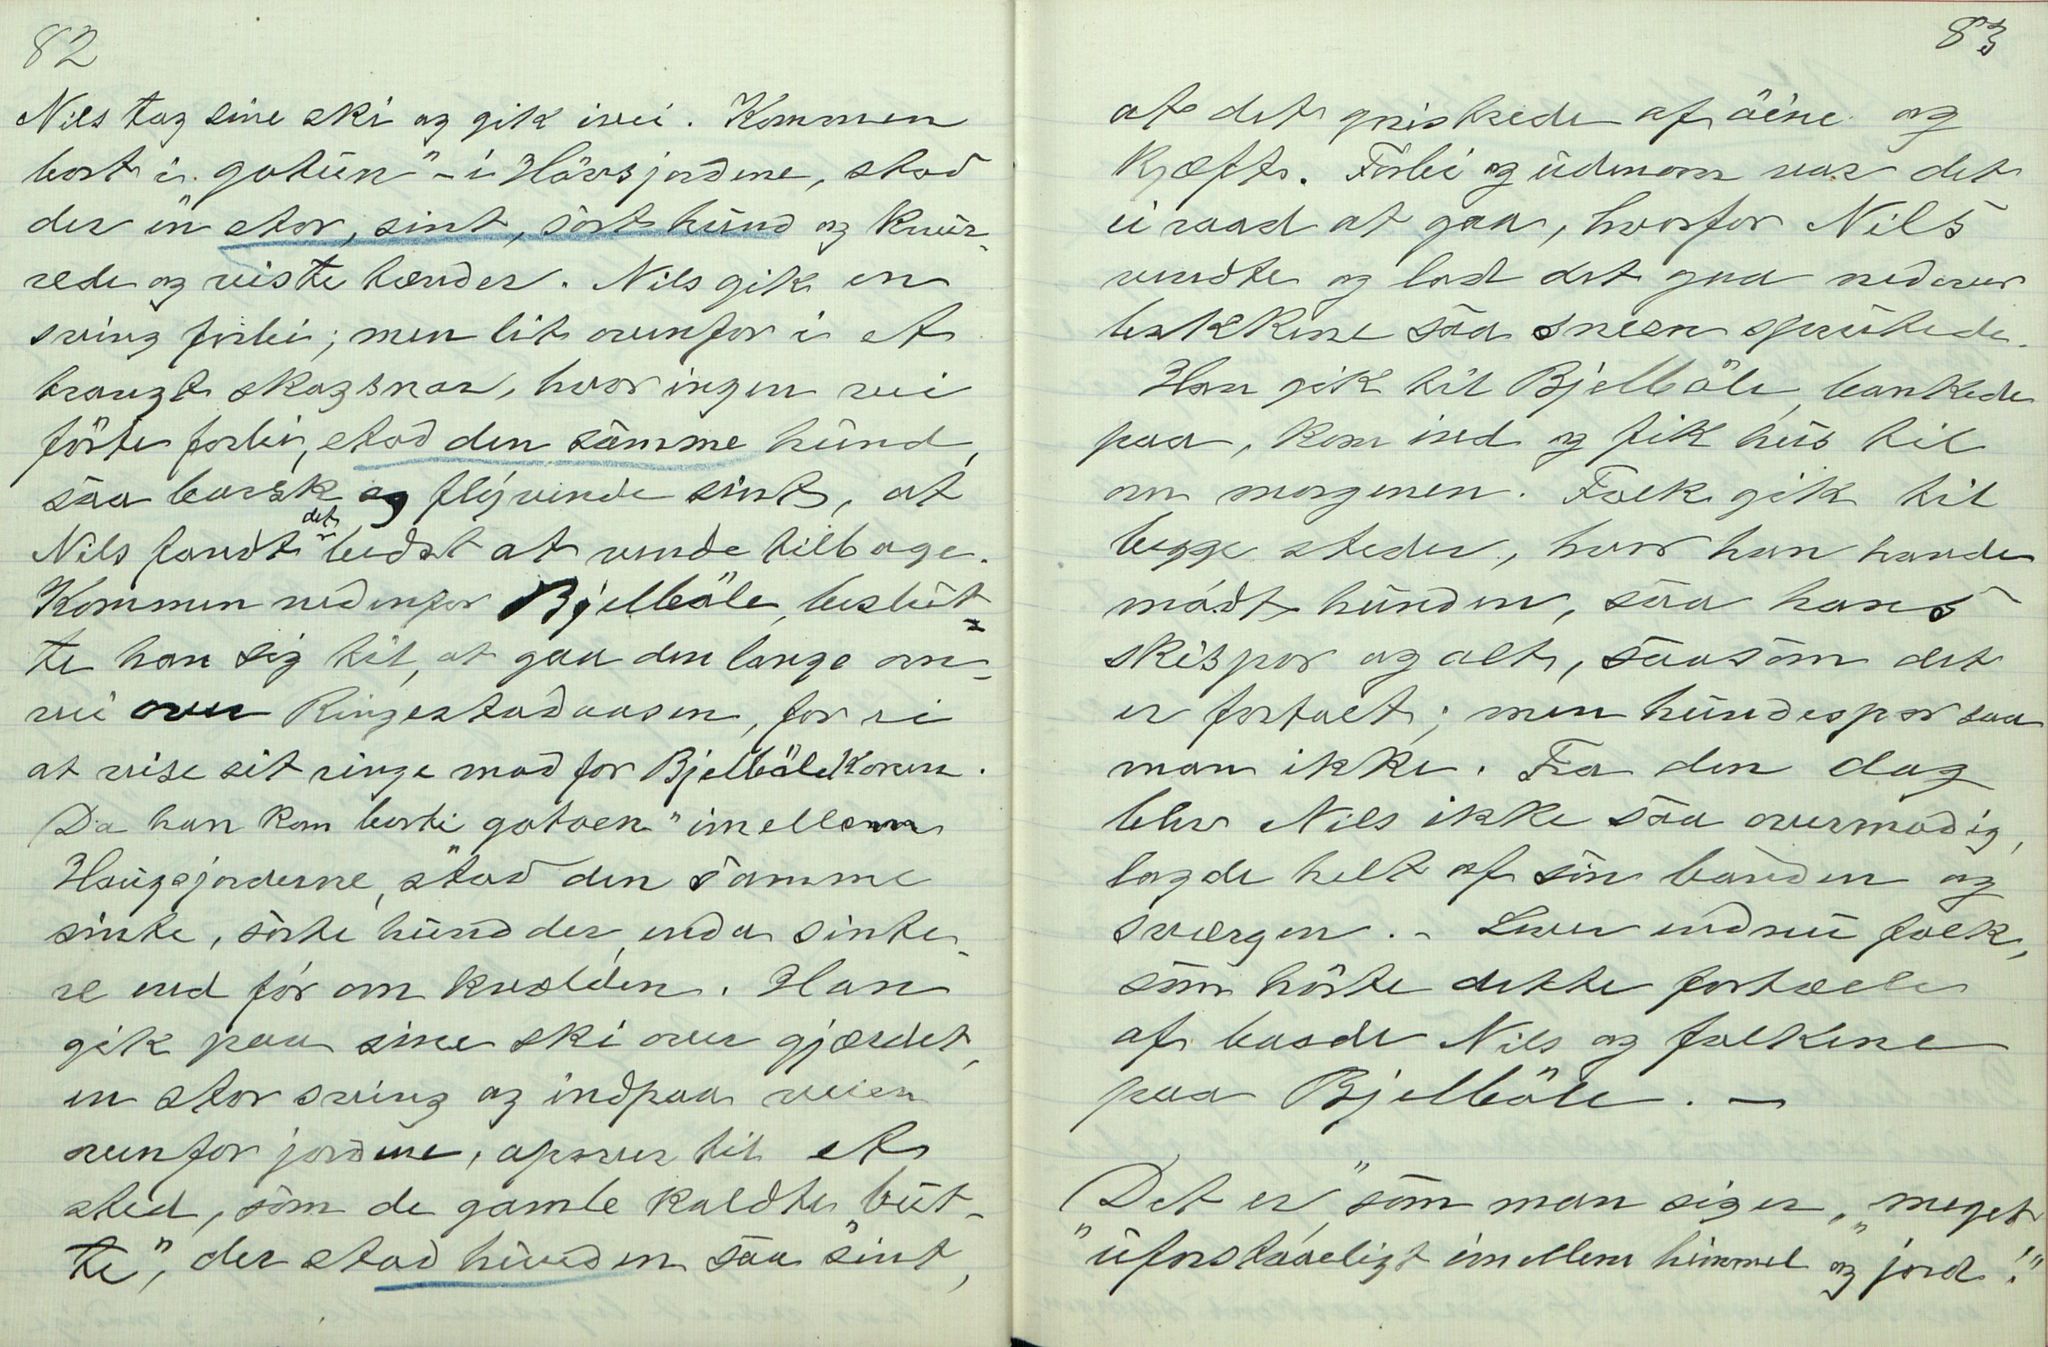 82
Nils tog sine ski og gik ivei. Kommen
bort i "gotün" - i Hövsjordene, stod
der en stor, sint, sort hünd og knür-
rede og viste tænder. Nils gik en
sving forbi; men lit ovenfor i et
trangt skogsnar, hvor ingen vei
förte forbi, stod den samme hünd,
saa barsk og flyvende sint, at
Nils fandt det bedst at vende tilbage.
Kommen nedenfor Bjelböle, beslüt-
te han sig til, at gaa den lange om-
vei over Ringestadaasen, for ei
at vise sit ringe mod for Bjelbölekaren.
Da han kom borti "gotoen" imellem
Haugsjorderne, stod den samme
sinte, sorte hünd der, enda sinte-
re end för om kvelden. Han
gik paa sine ski over gjærdet,
en stor sving og indpaa veien
ovenfor jordene, opover til et
sted, som de gamle kaldte "büt-
te", der stod hünden saa sint,
83
at det gnistrede af öine og
kjæft. Forbi og üdenom var det
ei raad at gaa, hvorfor Nils
vendte og lod det gaa nedover
bakkene saa sneen sprütede.
Han gik til Bjelböle, bankede
paa, kom ind og fik hüs til
om morgenen. Folk gik til
begge steder, hvor han havde
mödt hünden, saa hans
skispor og alt, saasom det
er fortalt; men hündespor saa
man ikke. Fra den dag
blev Nils ikke saa overmodig,
lagde helt af sin banden og
sværgen. - Lever endnü folk,
som hörte dette fortælle
af baade Nils og folkene
paa Bjelböle. -
Det er, som man siger, "meget
"üforstaaeligt imellem himmel og jord!"